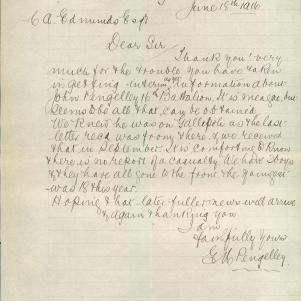 June 18th 1916
C A Edmunds Esq
Dear Sir
Thank you very
much for the trouble you have taken
in getting interim information about
John Pengelley 16th Battalion. It is meagre, but
seems to be all that can be obtained.
We knew he was on Gallipoli as the last
letter recd was from there, & we received
that in September. It is comforting to know
there is no report of a casualty. We have 3 boys
& they have all gone to the front the youngest
was 18 this year.
Hoping that later fuller news will arrive
& again thanking you
I am
Faithfully yours
Pengelley